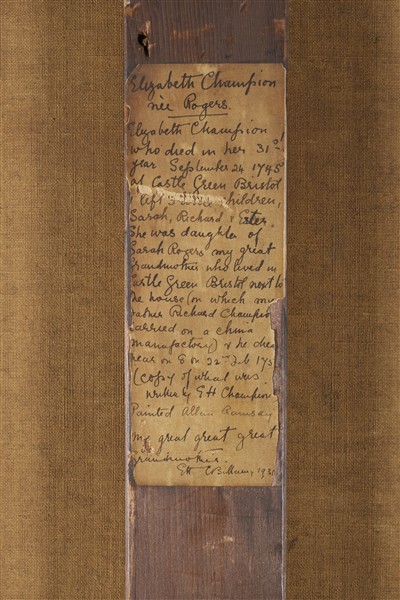 Elizabeth Champion
née Rogers.
Elizabeth Champion
who died in her 31st
year September 24 1745
at Castle Green Bristol
left 3 children,
Sarah, Richard & Ester.
She was daughter of
Sarah Rogers my great
Grandmother who lived in
Castle Green Bristol next to
the house (on which my
father Richard Champion
carried on a china
manufactory) & he died
near on 22nd Feb 175
(copy of what was
written by EH Champion
Painted Allan Ramsay
my great great great
grandmother.
EH 19